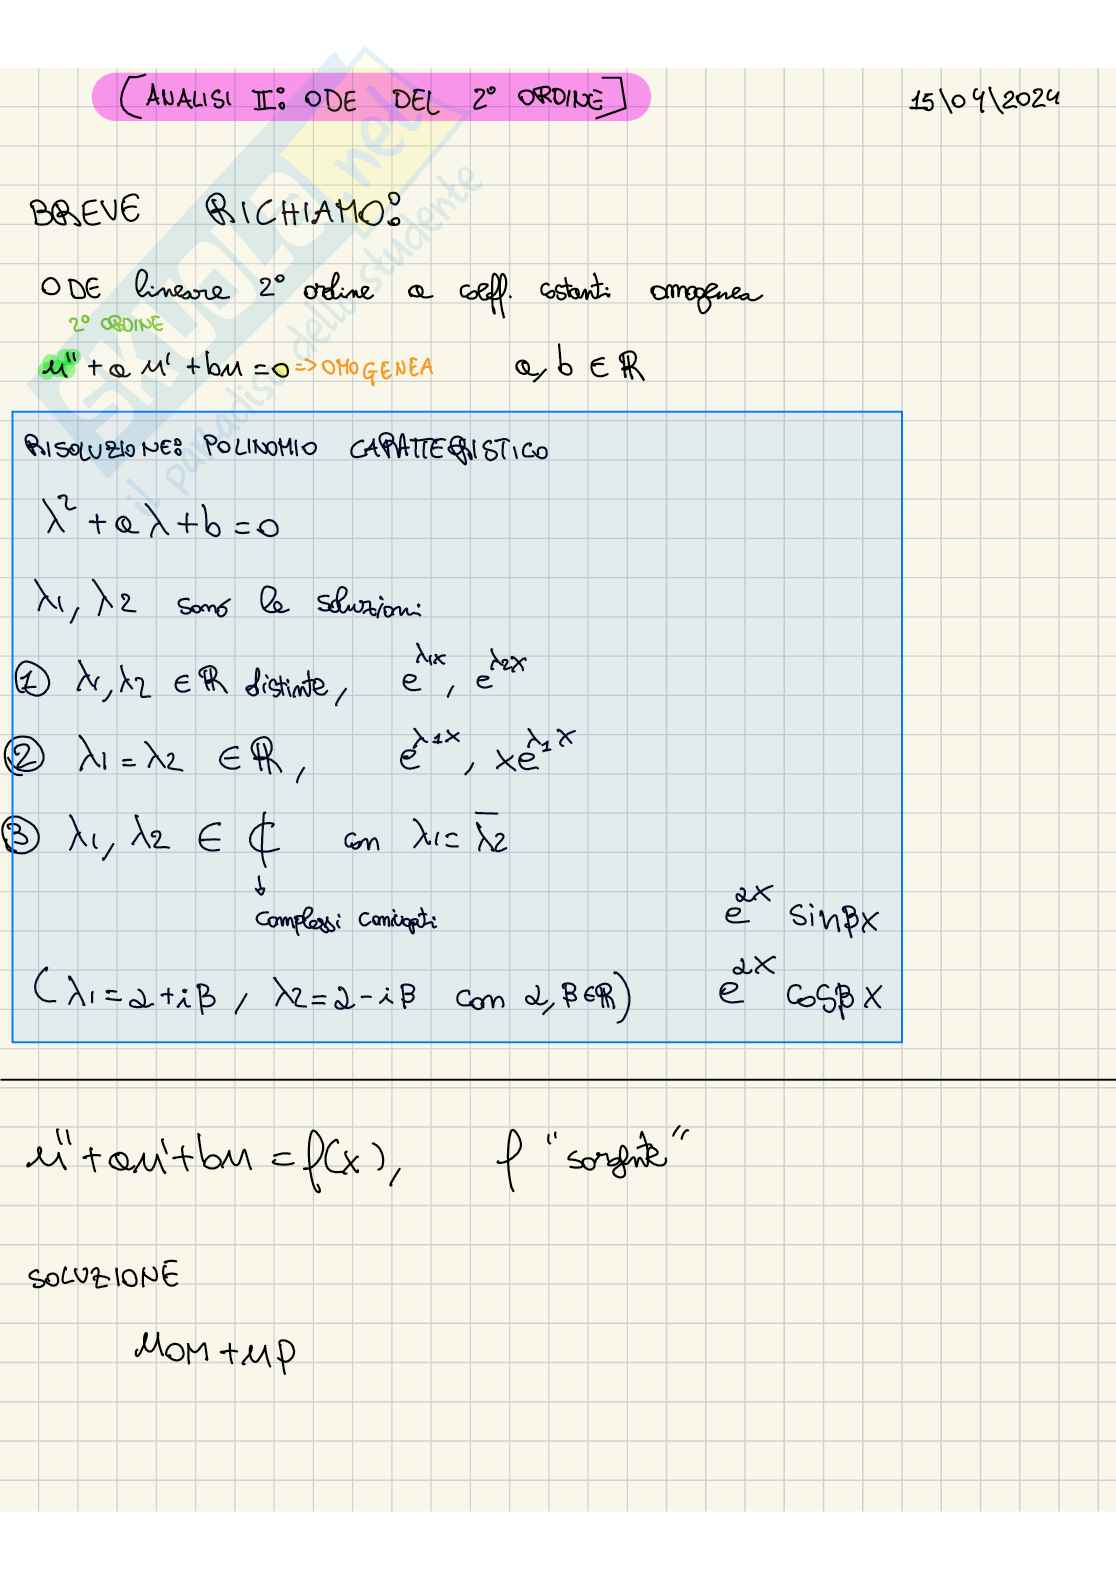 [ANALISI II: ODE DEL 2° ORDINE] 15\04\2024
BREVE RICHIAMO:
ODE lineare 2° ordine a coeff. costanti omogenea
2° ORDINE
u'' + a u' + bu = 0 => OMOGENEA a, b ∈ ℝ
RISOLUZIONE: POLINOMIO CARATTERISTICO
λ² + aλ + b = 0
λ1, λ2 sono le soluzioni
① λ1, λ2 ∈ ℝ distinte, e^{λ1x}, e^{λ2x}
② λ1 = λ2 ∈ ℝ, e^{λ1x}, xe^{λ1x}
③ λ1, λ2 ∈ ℂ con λ1 = \overline{λ2}
↓
complessi coniugati
e^{αx} sinβx
(λ1 = α + iβ, λ2 = α - iβ con α, β ∈ ℝ) e^{αx} cosβx
u'' + au' + bu = f(x), f "sorgente"
SOLUZIONE
uOM + uP
SKUOLA.net
il paradiso dello studente